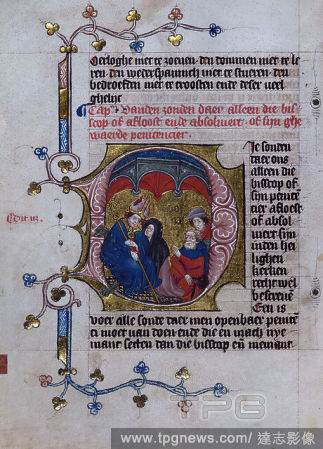 oerloghe niet te zoenen den dommen niet te le
ren den wederspannich niet te stueren den
bedroeften niet te troosten ende deser veel
ghelijc
Cap Vanden zonden daer alleen die bis
scop of afloest ende absolviert of sijn ghe
waerde penitencier
Die sonden
daer ons
alleen die
bisscop of
sijn penite
cier afloest
of absol
uiert sijn
inden hei
lighen
kerken
recht wel
bescreue
Een is
voer alle sonde daer men openbaer penite
ci moet van doen ende die en mach nye
mant setten dan die bisscop en niemant
TPG
www.tpgnews.com / 達志影像